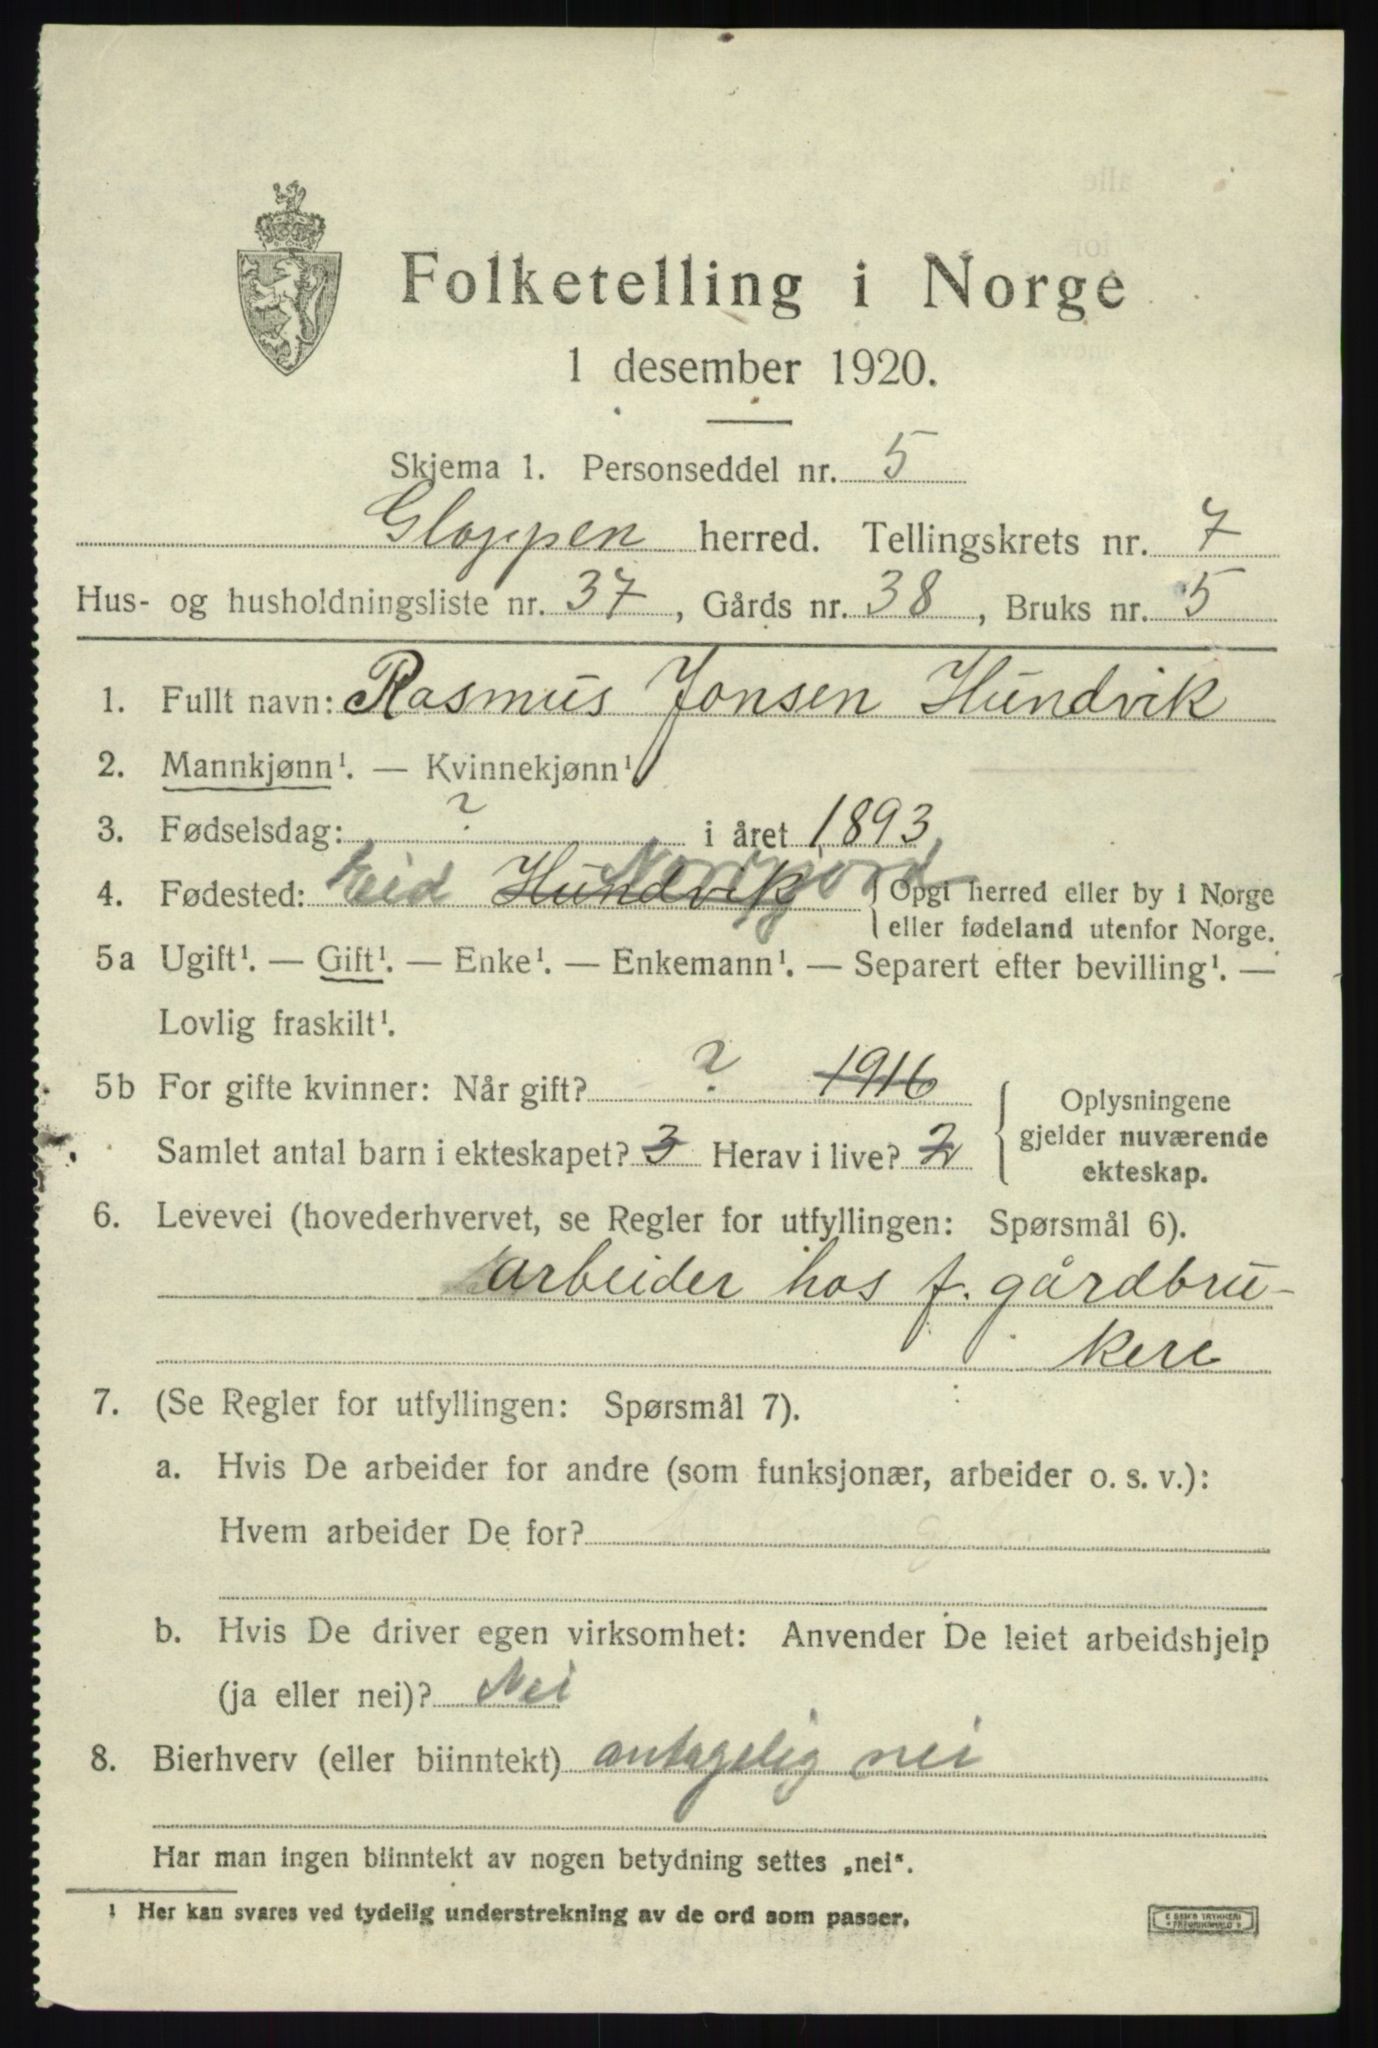 Folketelling i Norge
1 desember 1920.
Skjema 1. Personseddel nr. 5
Gloppen herred. Tellingskrets nr. 7
Hus- og husholdningsliste nr. 37, Gårds nr. 38, Bruks nr. 5
1. Fullt navn: Rasmus Jonsen Hundvik
2. Mannkjønn¹. — Kvinnekjønn¹
3. Fødselsdag: ? i året 1893
4. Fødested: Eid Hundvik Nordfjord Opgi herred eller by i Norge
eller fødeland utenfor Norge.
5a Ugift¹. — Gift¹. — Enke¹. — Enkemann¹. — Separert efter bevilling¹. —
Lovlig fraskilt¹.
5b For gifte kvinner: Når gift? ? 1916
Samlet antal barn i ekteskapet? 3 Herav i live? 2
Oplysningene
gjelder nuværende
ekteskap.
6. Levevei (hovederhvervet, se Regler for utfyllingen: Spørsmål 6).
arbeider hos f. gårdbru-
kere
7. (Se Regler for utfyllingen: Spørsmål 7).
a. Hvis De arbeider for andre (som funksjonær, arbeider o. s. v.):
Hvem arbeider De for?
b. Hvis De driver egen virksomhet: Anvender De leiet arbeidshjelp
(ja eller nei)? Nei
8. Bierhverv (eller biinntekt) antagelig nei
Har man ingen biinntekt av nogen betydning settes „nei“.
¹ Her kan svares ved tydelig understrekning av de ord som passer.